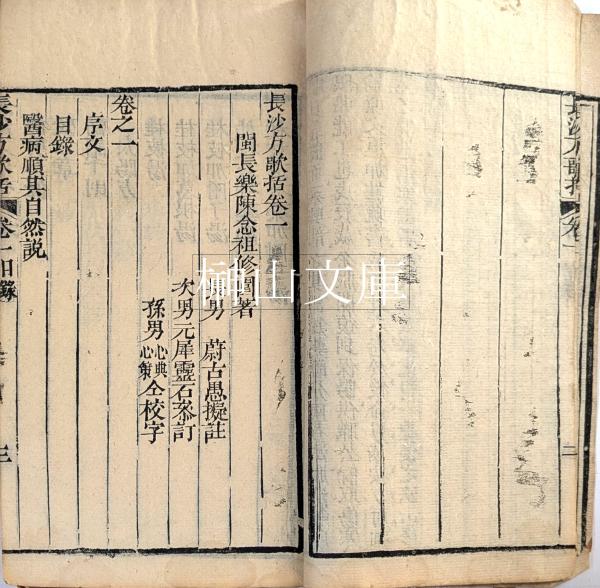 長沙方歌括
卷一
二
長沙方歌括卷一
閩長樂陳念祖修園著
男 蔚古愚擬註
次男元犀靈石叅訂
孫男 心典 心策 仝校字
卷之一
序文
目錄
醫病順其自然說
長沙方歌括
卷一目錄
三
榊山文庫